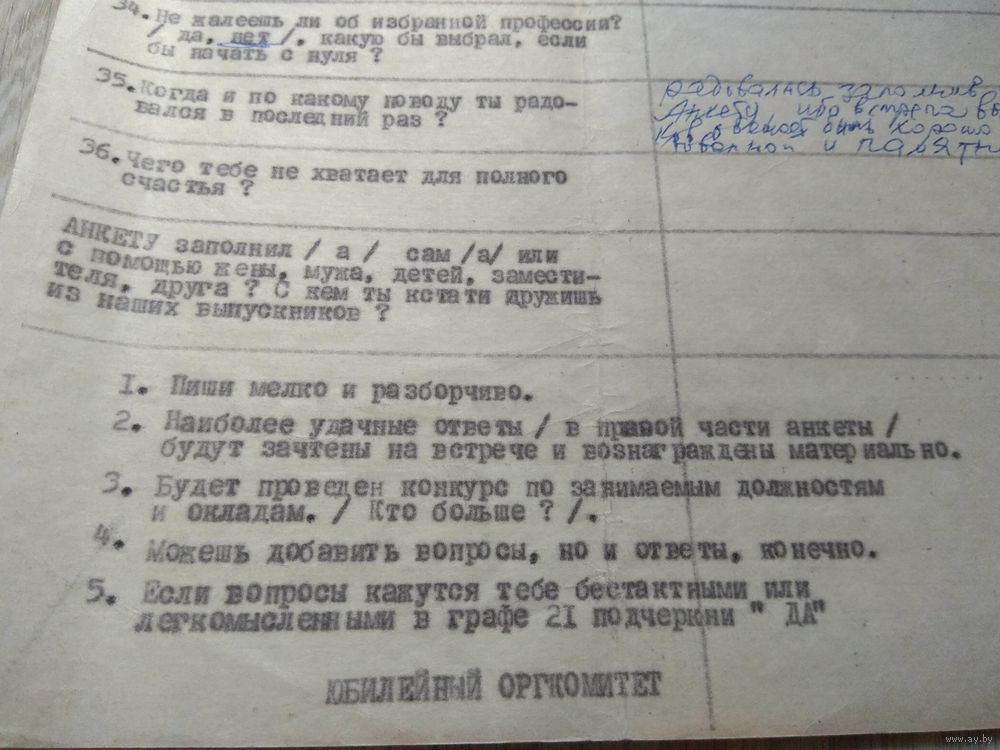 34. Не жалеешь ли об избранной профессии?
/ да, нет /, какую бы выбрал, если
бы начать с нуля ?
35. Когда и по какому поводу ты радо-
вался в последний раз ?
радовалась заполняв
Анкету ибо встреча
быть хорошо
и памятн
36. Чего тебе не хватает для полного
счастья ?
АНКЕТУ заполнил / а / сам /а/ или
с помощью жены, мужа, детей, замести-
теля, друга ? С кем ты кстати дружишь
из наших выпускников ?
I. Пиши мелко и разборчиво.
2. Наиболее удачные ответы / в правой части анкеты /
будут зачтены на встрече и вознаграждены материально.
3. Будет проведен конкурс по занимаемым должностям
и окладам. / Кто больше ? /.
4. Можешь добавить вопросы, но и ответы, конечно.
5. Если вопросы кажутся тебе бестактными или
легкомысленными в графе 2I подчеркни " ДА"
ЮБИЛЕЙНЫЙ ОРГКОМИТЕТ
www.ay.by